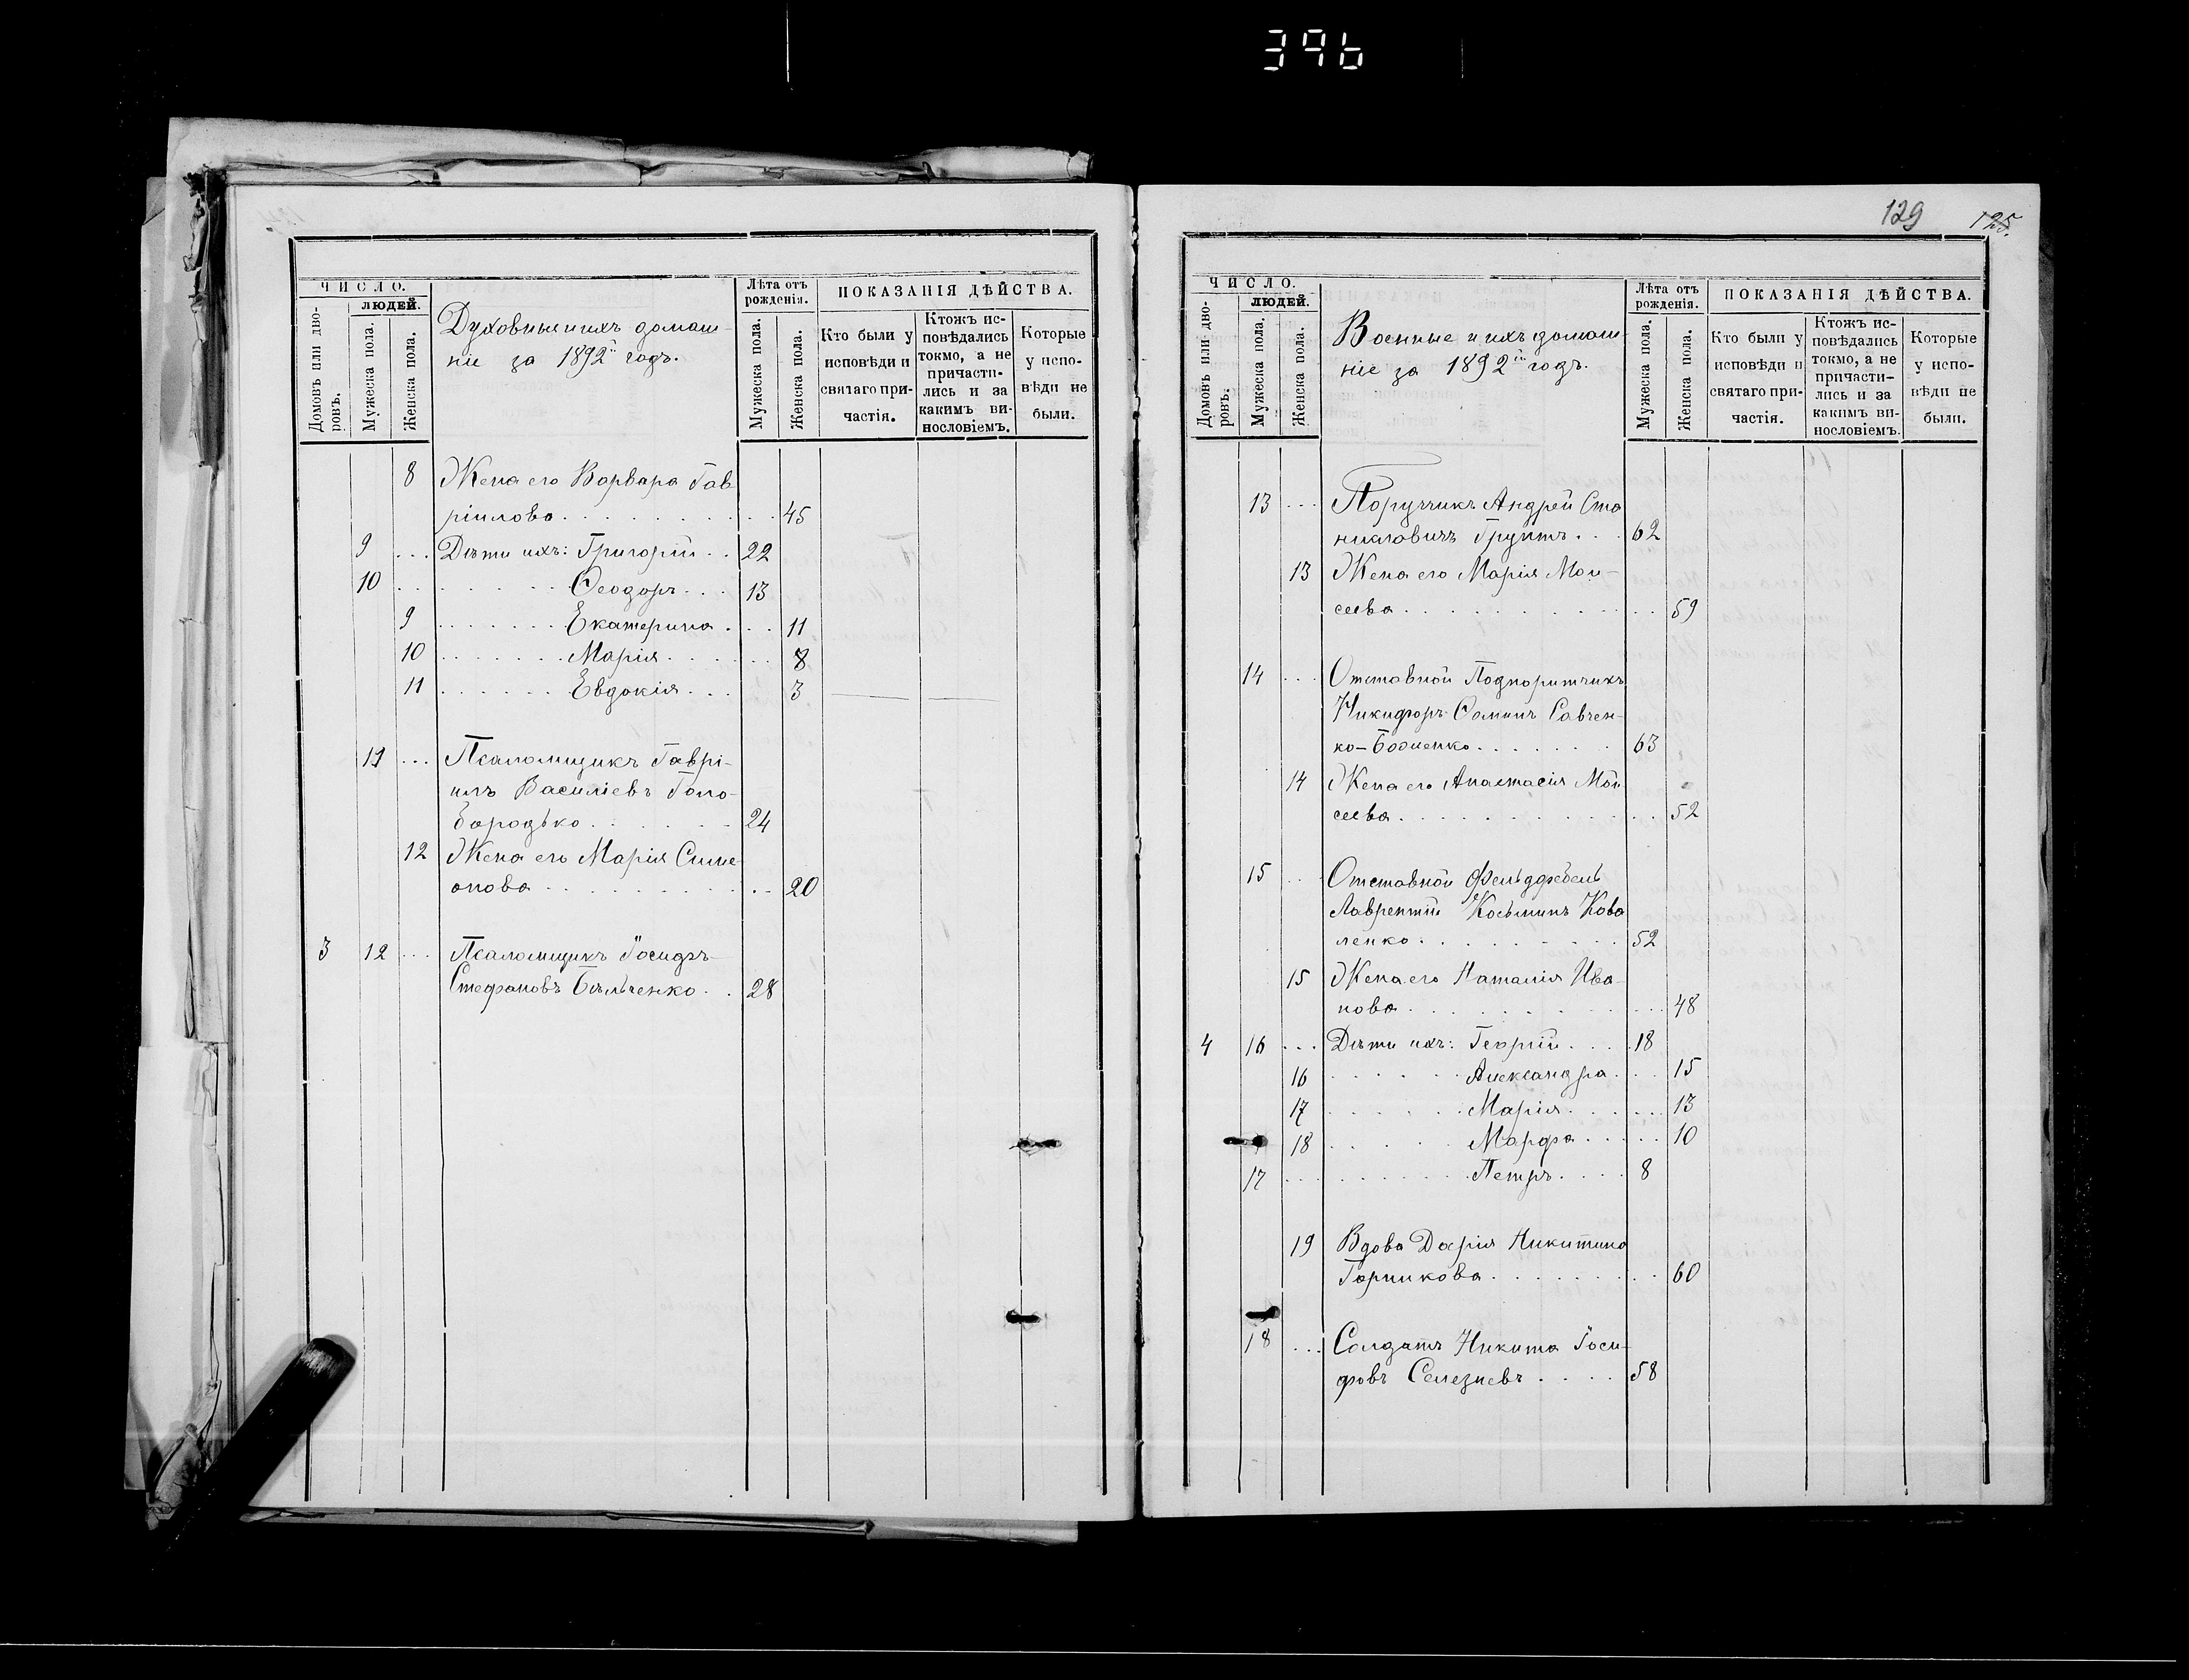 396
ЧИСЛО.
ЛЮДЕЙ.
Домовъ или дворовъ.
Мужеска пола.
Женска пола.
Духовные и ихъ домаш-
ніе за 1892й годъ.
Лѣта отъ
рожденія.
Мужеска пола.
Женска пола.
ПОКАЗАНІЯ ДѢЙСТВА.
Кто были у
исповѣди и
святаго при-
частія.
Ктожъ ис-
повѣдались
токмо, а не
причасти-
лись и за
какимъ ви-
нословіемъ.
Которые
у испо-
вѣди не
были.
8 Жена его Варвара Гав
ріилова 45
9 Дѣти ихъ: Григорій 22
10 Ѳеодоръ 13
9 Екатерина 11
10 Марія 8
11 Евдокія 3
11 Псаломщикъ Гаврі-
илъ Василіевъ Голо-
бородько 24
12 Жена его Марія Симе-
онова 20
3 12 Псаломщикъ Іосифъ
Стефановъ Бѣльченко 28
129 125.
ЧИСЛО.
ЛЮДЕЙ.
Домовъ или дворовъ.
Мужеска пола.
Женска пола.
Военные и ихъ домаш-
ніе за 1892й годъ.
Лѣта отъ
рожденія.
Мужеска пола.
Женска пола.
ПОКАЗАНІЯ ДѢЙСТВА.
Кто были у
исповѣди и
святаго при-
частія.
Ктожъ ис-
повѣдались
токмо, а не
причасти-
лись и за
какимъ ви-
нословіемъ.
Которые
у испо-
вѣди не
были.
13 Поручикъ Андрей Ста
ниловичъ Грунтъ 62
13 Жена его Марія Мои-
сеева 59
14 Отставной Подпоритчикъ
Никифоръ Ѳоминъ Савчен-
ко- 63
14 Жена его Анастасія Мои
сеева 52
15 Отставной Фельдфебель
Лаврентій Косьминъ Кова
ленко 52
15 Жена его Наталія Ива-
нова 48
4 16 Дѣти ихъ: Георгій 18
16 Александра 15
17 Марія 13
18 Марфа 10
17 Петръ 8
19 Вдова Дарія Никитина
Горникова 60
18 Солдатъ Никита Іоси-
фовъ Селезневъ 58